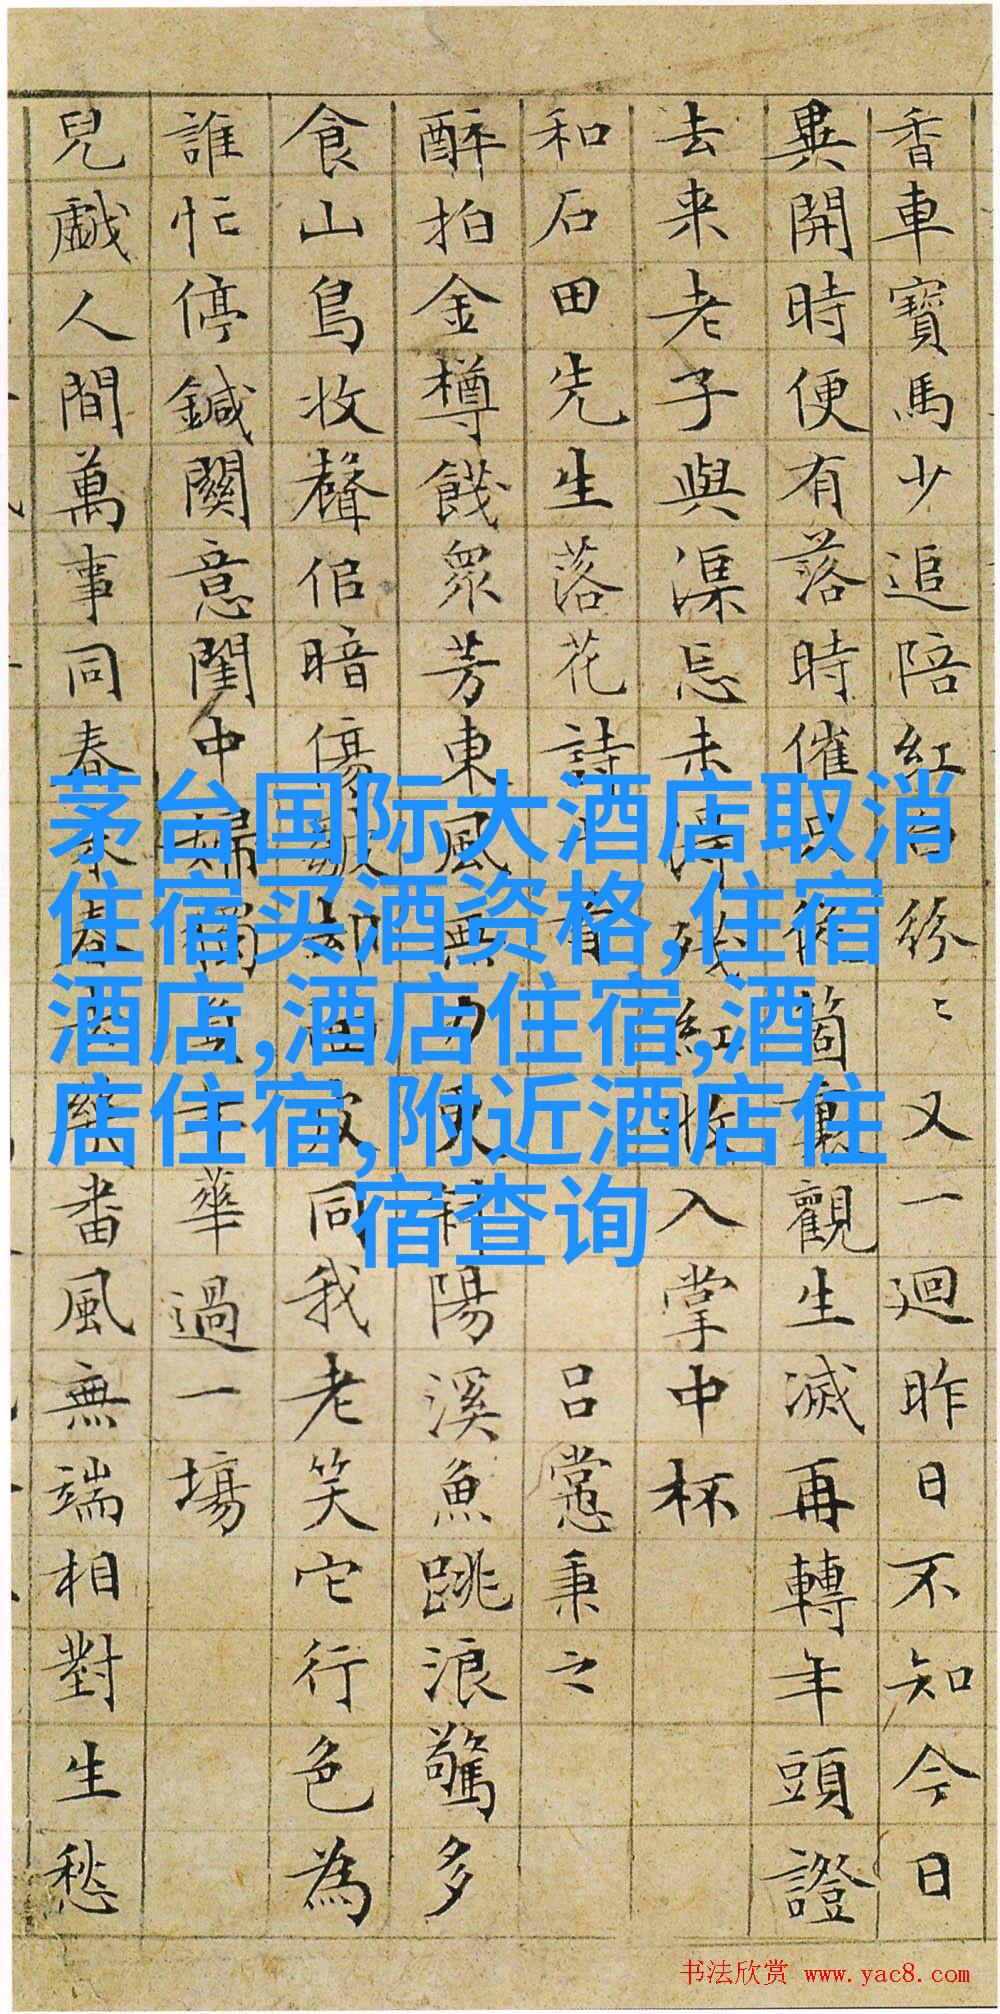 香車寶馬少追陪紅白紛〻又一迴昨日不知今日
異開時便有落時催只從箇裏觀生滅再轉年頭證
去来老子與渠忘未得残紅收入掌中杯
和石田先生落花詩十首 呂㦂秉之
醉拍金樽餞衆芳東風無力更斜陽溪魚跳浪驚多
食山鳥收聲倍暗傷却同我老笑它行色為
誰忙停鍼關意閨中婦獨年華過一場
兒戲人間萬事同春來春去幾番風無端相對生愁
茅台国际大酒店取消
住宿买酒资格,住宿
酒店,酒店住宿,酒
店住宿,附近酒店住
宿查询
书法欣赏 www.yac8.com